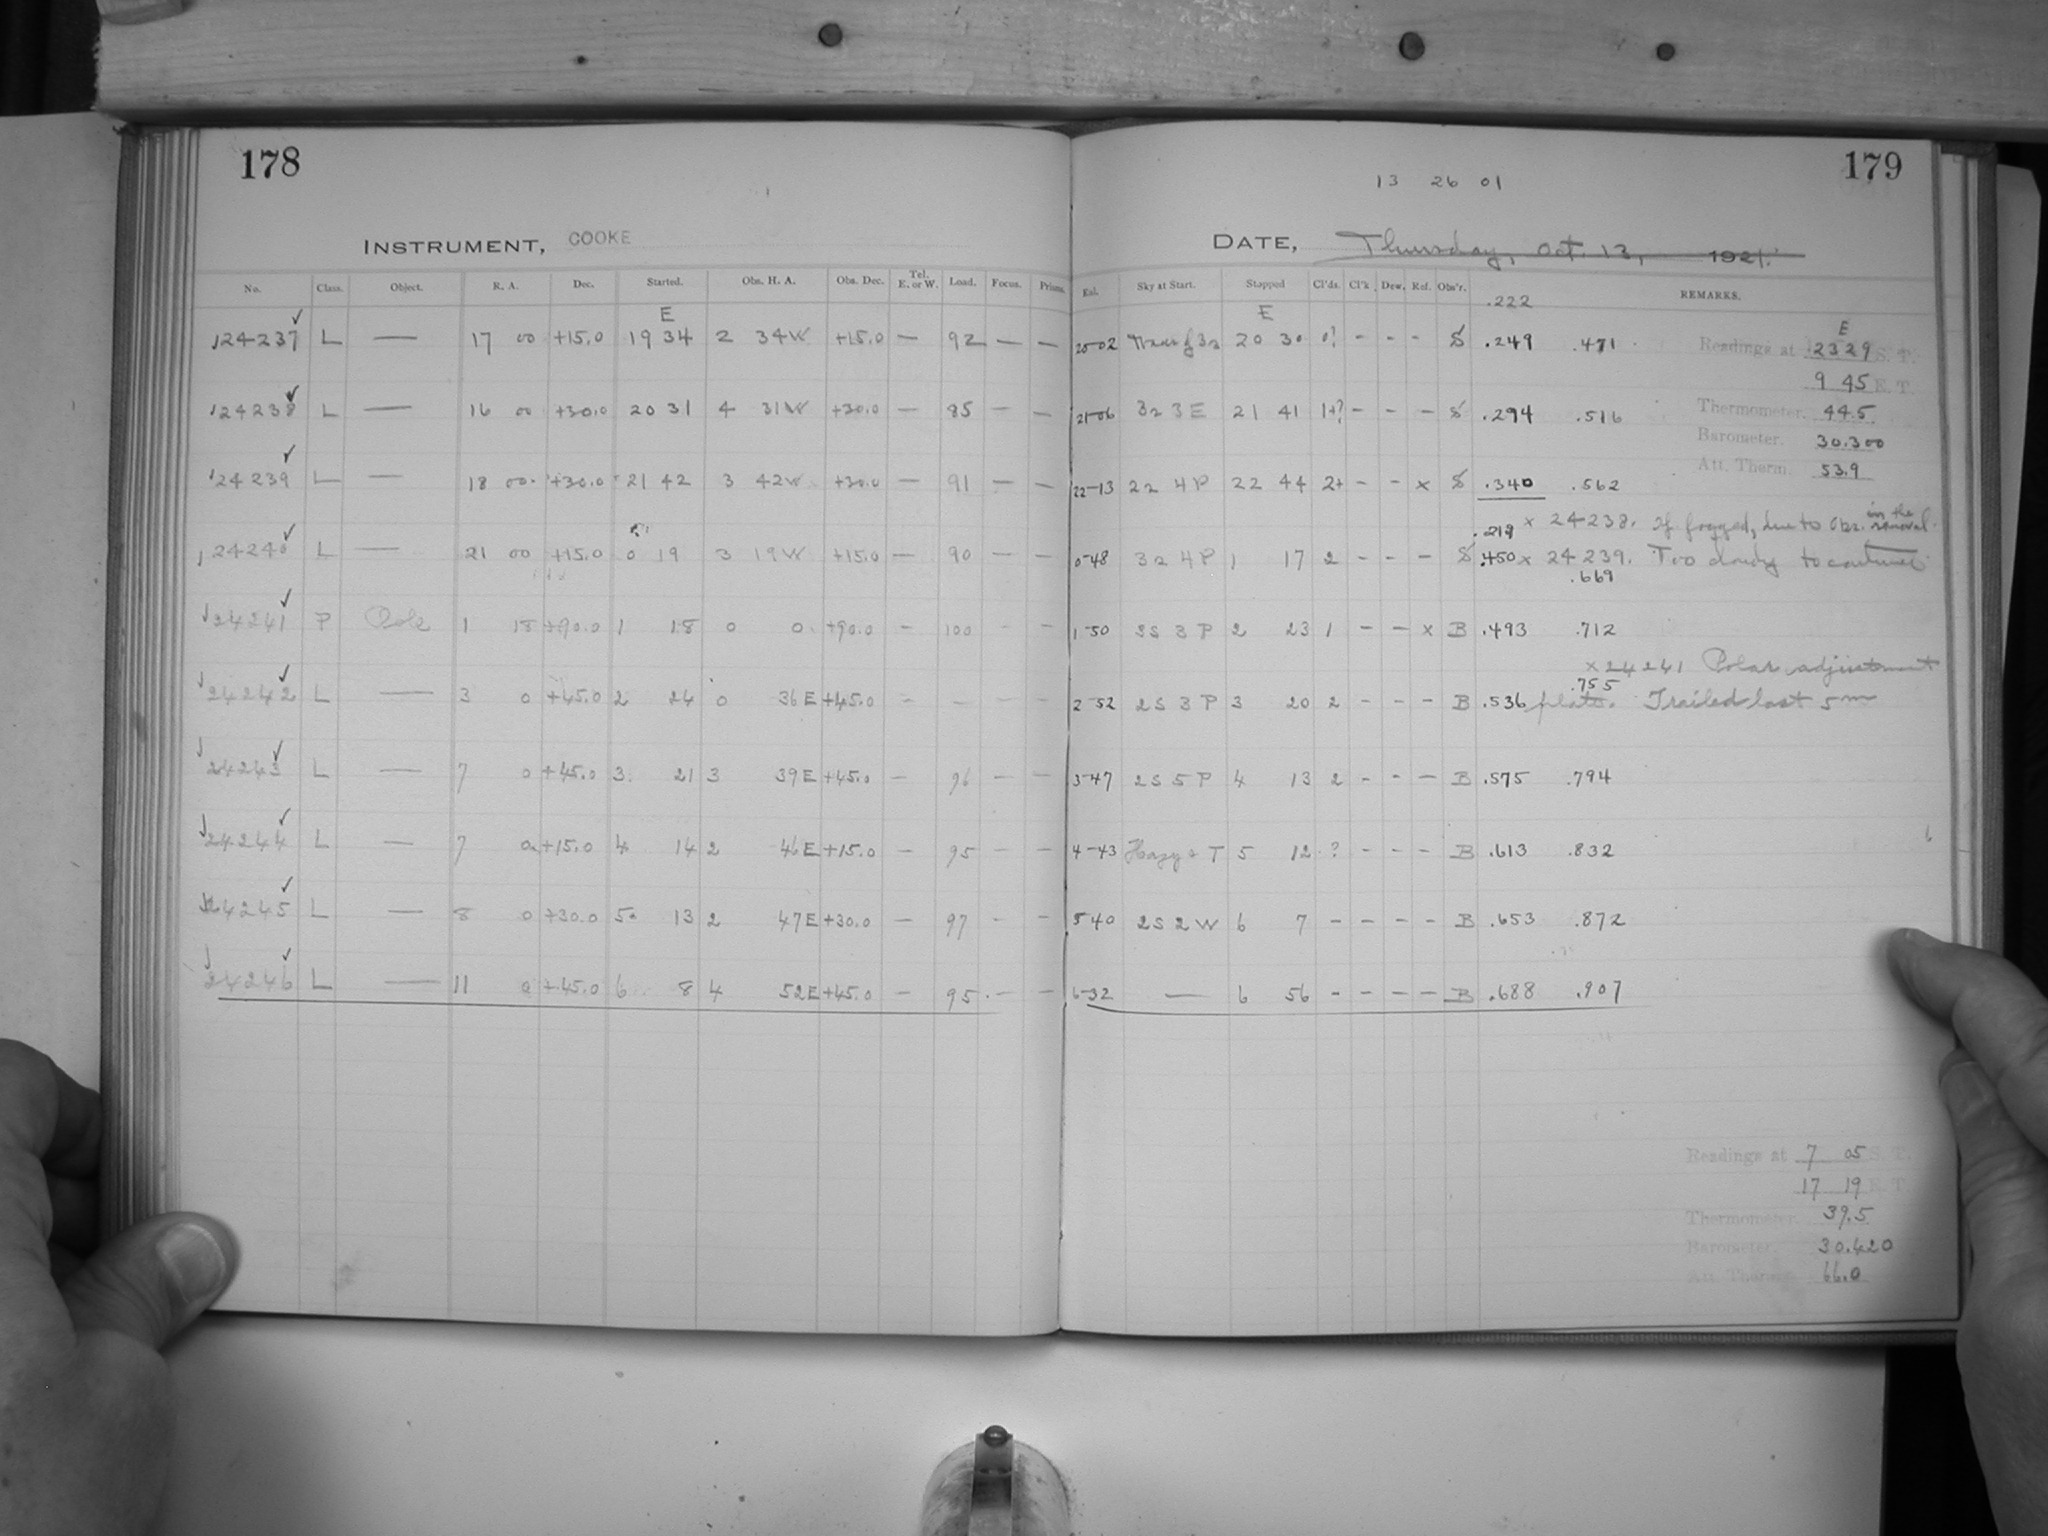 178
INSTRUMENT, COOKE
No. Class. Object. R. A. Dec. Started. Obs. H. A. Obs. Dec. Tel. E. or W. Load. Focus. Prisms.
E
24237 L — 17 00 +15.0 19 34 2 34W +15.0 — 92 — —
24238 L — 16 00 +30.0 20 31 4 31W +30.0 — 85 — —
24239 L — 18 00 +30.0 21 42 3 42W +30.0 — 91 — —
24240 L — 21 00 +15.0 0 19 3 19W +15.0 — 90 — —
24241 P Pole 1 18 +90.0 1 18 0 0 +90.0 — 100 — —
24242 L — 3 0 +45.0 2 24 0 36E +45.0 — — — —
24243 L — 7 0 +45.0 3 21 3 39E +45.0 — 96 — —
24244 L — 7 0 +15.0 4 14 2 46E +15.0 — 95 — —
24245 L — 8 0 +30.0 5 13 2 47E +30.0 — 97 — —
24246 L — 11 0 +45.0 6 8 4 52E +45.0 — 95 — —
179
13 26 01
DATE, Thursday, Oct. 13, 1921.
Sky at Start. Stopped Cl'ds. Cl'k. Dew. Ref. Obs'r. REMARKS.
.222
E
20-02 20 30 0? - - - S .249 .471
21-06 32 3E 21 41 1+? - - - S .294 .516
22-13 22 4P 22 44 2+ - - x S .340 .562
E
Readings at 23 29 S. T.
9 45 E. T.
Thermometer. 44.5
Barometer. 30.300
Att. Therm. 53.9
.219 x 24238. If fogged, due to Obs. in the removal.
0-48 32 4P 1 17 2 - - - S .450 x 24239. Too cloudy to continue
.669
1-50 2S 3P 2 23 1 - - x B .493 .712
x 24241 Polar adjustment
.755
2-52 2S 3P 3 20 2 - - - B .536 plate. Trailed last 5m
3-47 2S 5P 4 13 2 - - - B .575 .794
4-43 Hazy + T 5 12 ? - - - B .613 .832
5-40 2S 2W 6 7 - - - - B .653 .872
6-32 — 6 56 - - - - B .688 .907
Readings at 7 05 S. T.
17 19 E. T.
Thermometer. 39.5
Barometer. 30.420
Att. Therm. 66.0